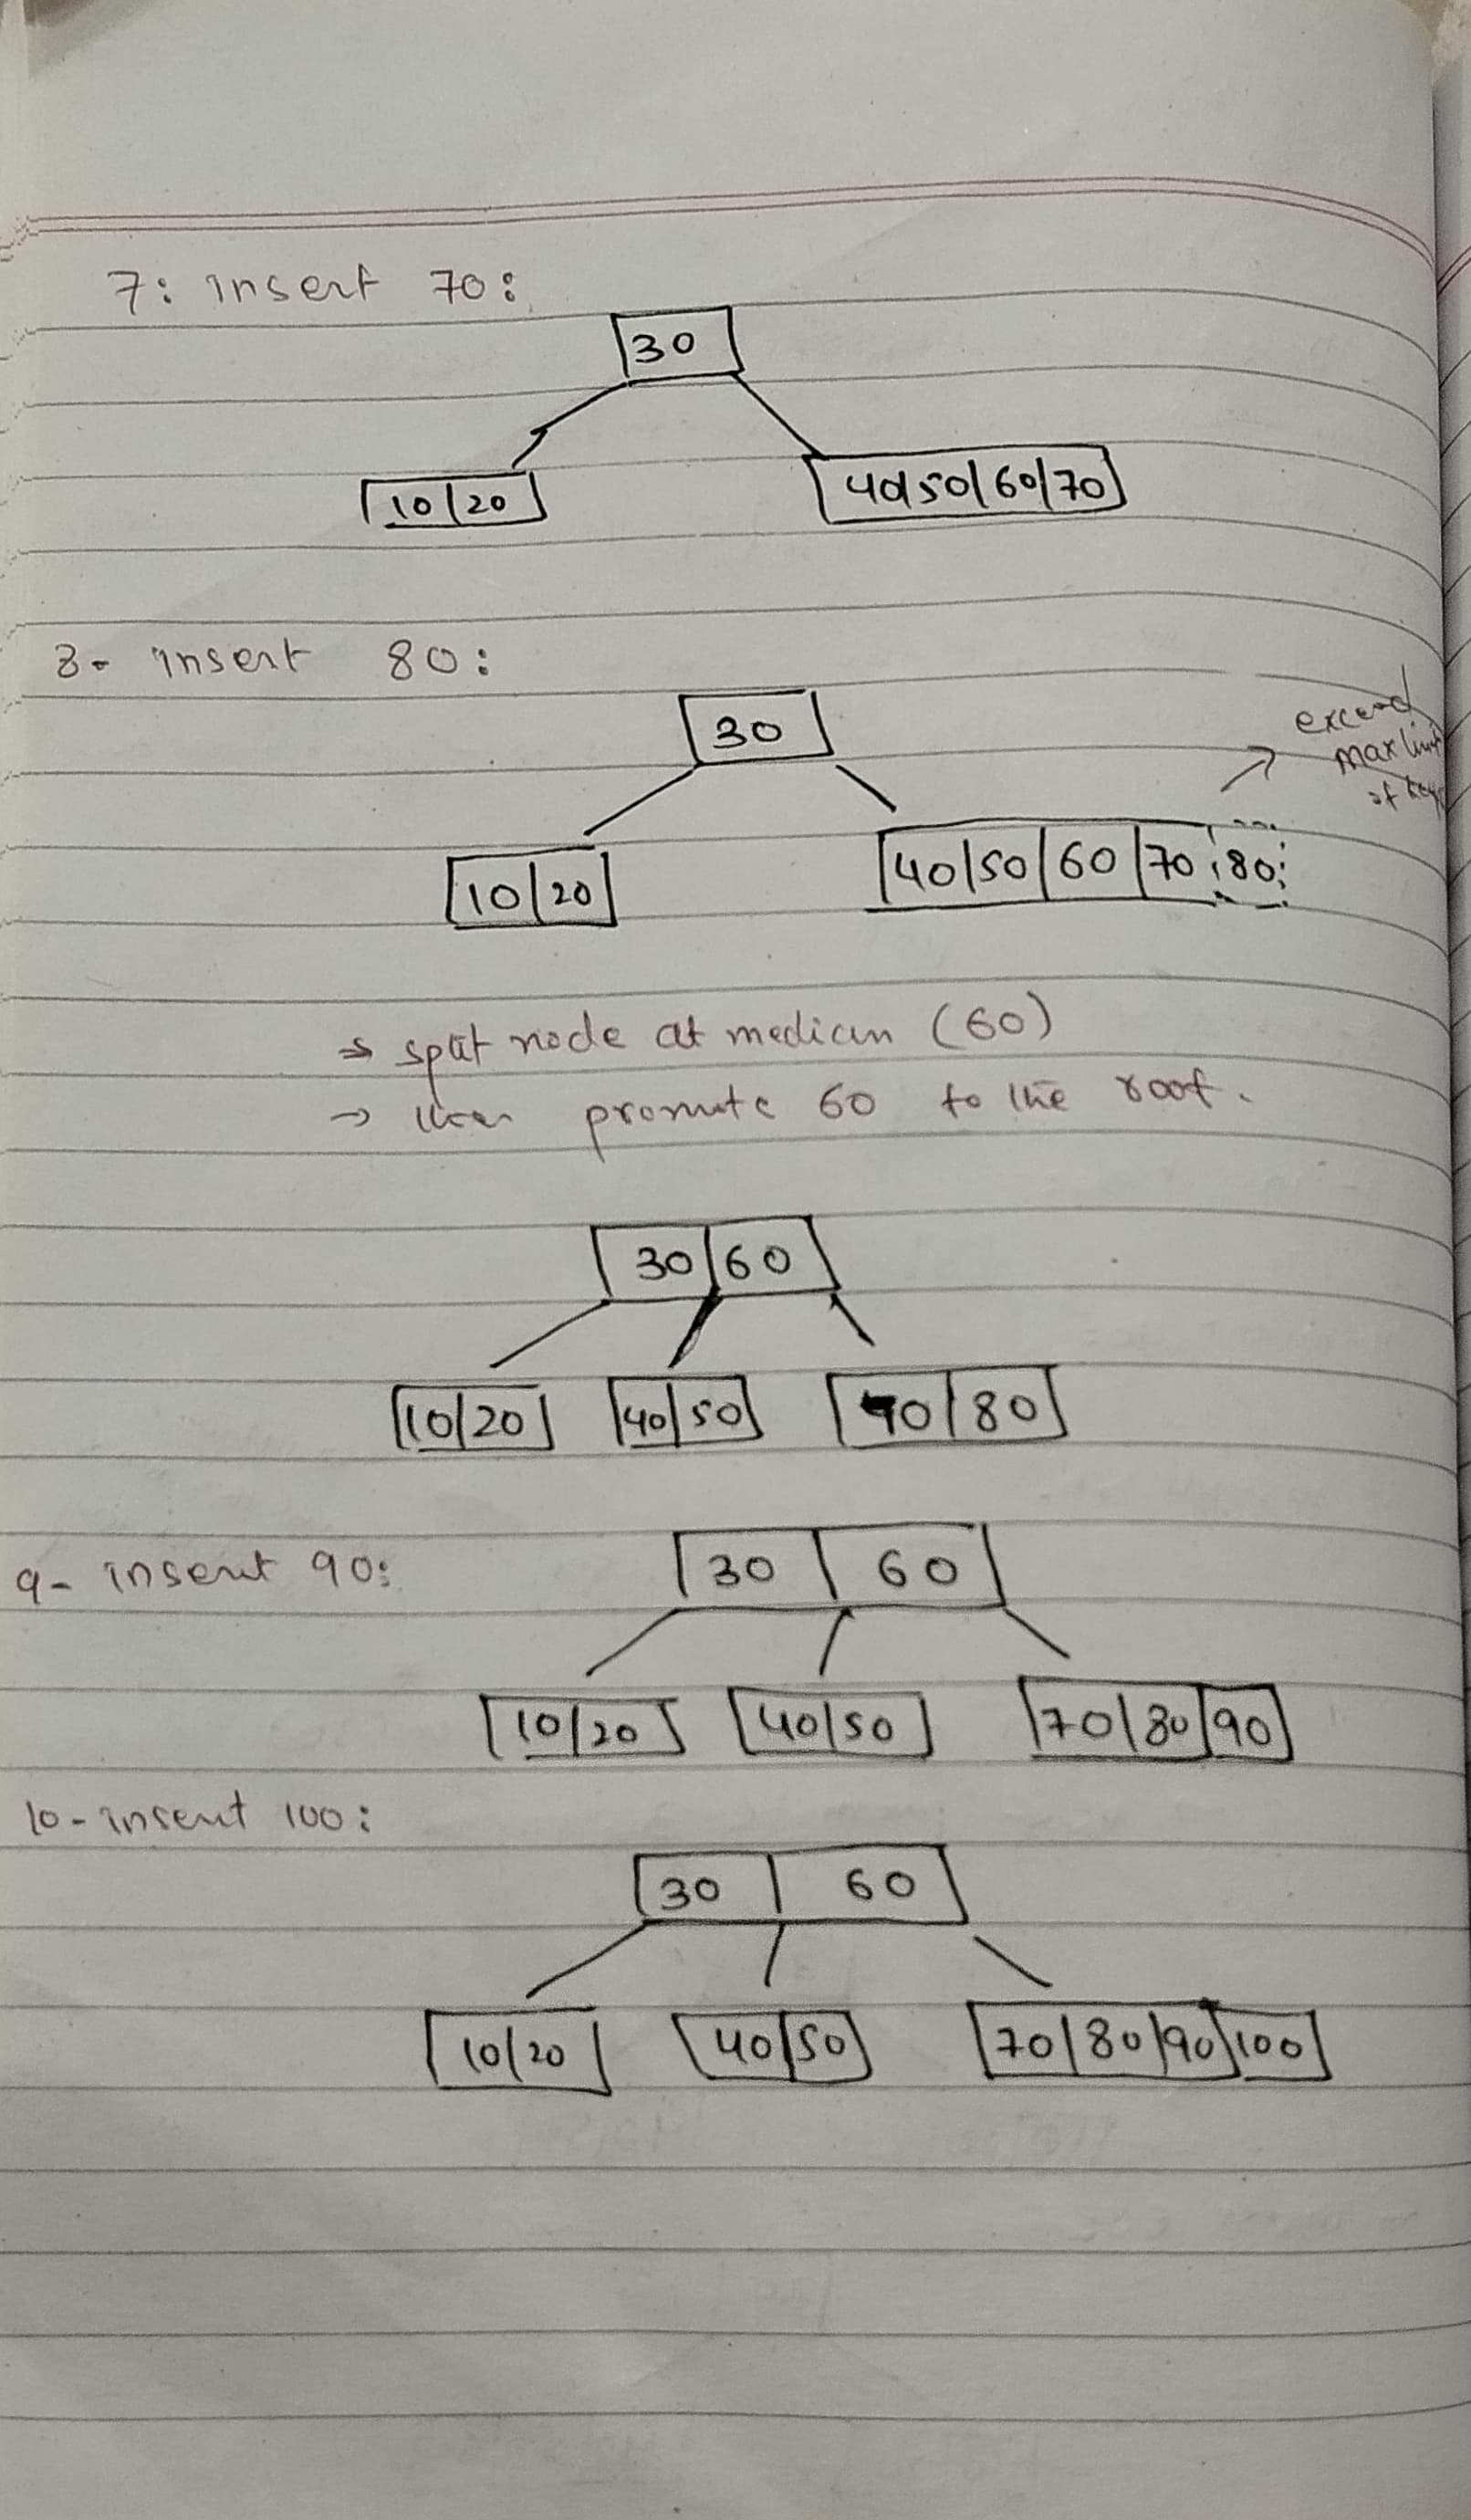 7: insert 70:
30
10|20 40|50|60|70
8- insert 80:
exceed
max limit
of keys
30
10|20 40|50|60|70|80
→ split node at median (60)
→ then promote 60 to the root.
30|60
10|20 40|50 70|80
9- insert 90:
30|60
10|20 40|50 70|80|90
10- insert 100:
30|60
10|20 40|50 70|80|90|100